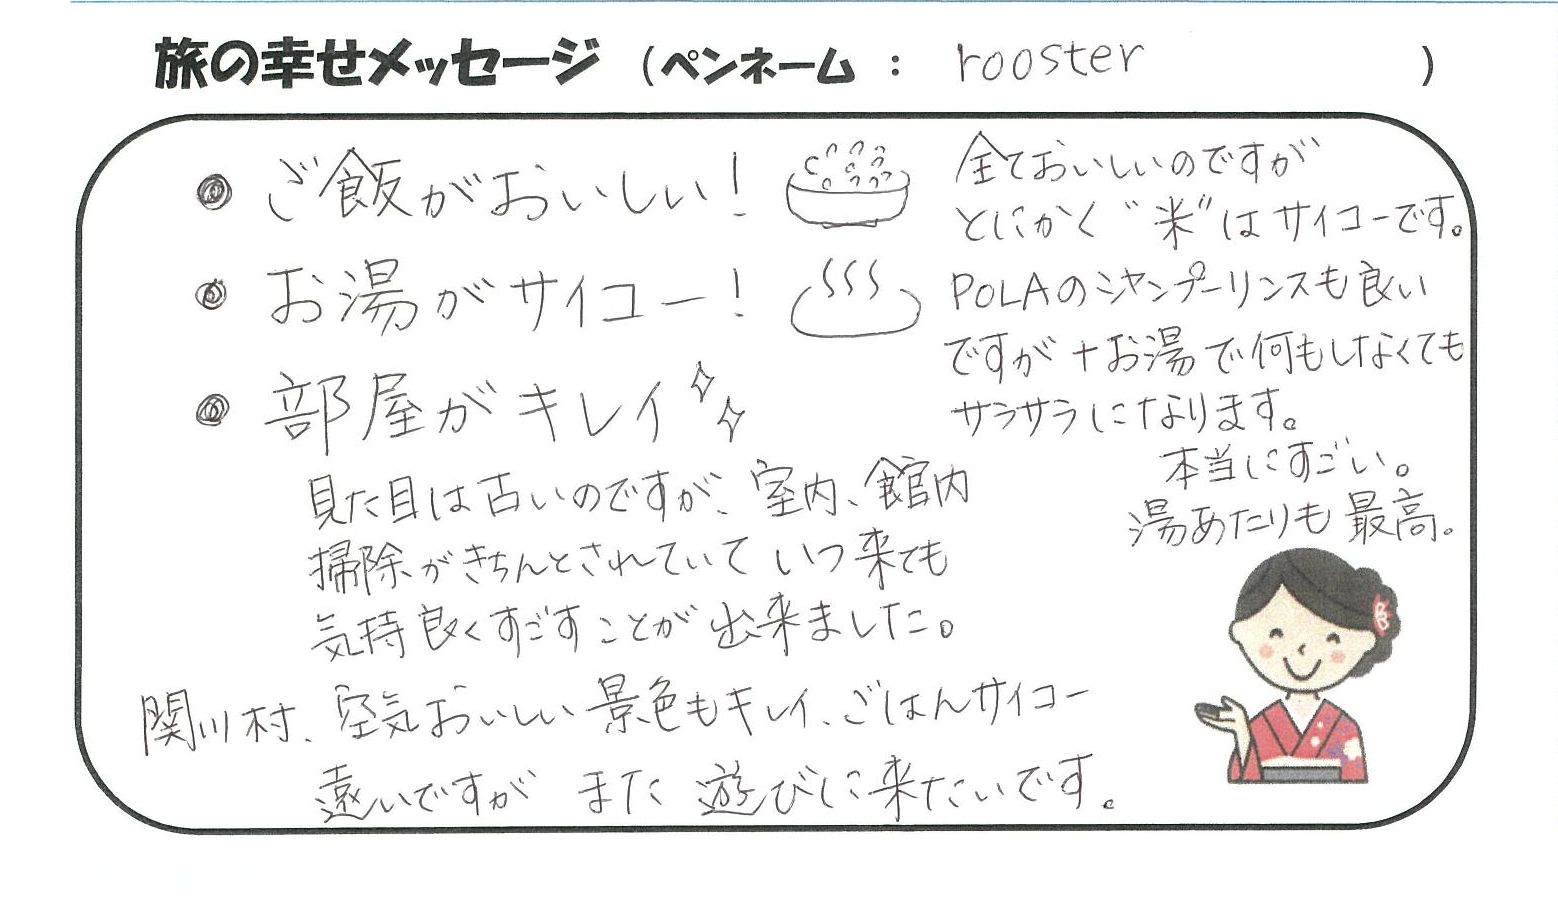 旅の幸せメッセージ（ペンネーム：rooster）
● ご飯がおいしい！
全ておいしいのですが
とにかく"米"はサイコーです。
● お湯がサイコー！
POLAのシャンプーリンスも良い
ですが+お湯で何もしなくても
サラサラになります。
本当にすごい。
湯あたりも最高。
● 部屋がキレイ
見た目は古いのですが、室内、館内
掃除がきちんとされていていつ来ても
気持良くすごすことが出来ました。
関川村、空気おいしい景色もキレイ、ごはんサイコー
遠いですが また 遊びに来たいです。